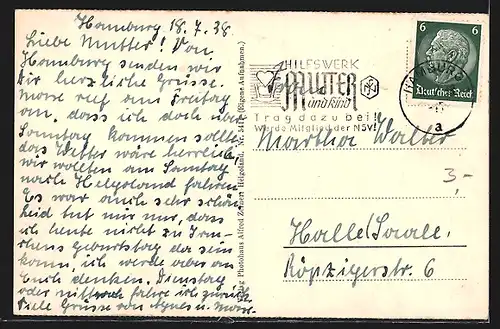 Hamburg 18.7.38.
Liebe Mutter! Von
Hamburg senden wir
Dir herzliche Grüsse.
rief am Freitag
an, dass ich doch
Sonntag kommen sollte
das Wetter wäre herrlich,
wir wollten am Sonntag
nach Helgoland fahren.
Es war auch sehr schön
leid tut mir nur, dass
ich heute nicht zu
Geburtstag da sein
kann, ich werde aber an
Euch denken. Dienstag
oder mittwoch fahre ich zurück
Viele Grüsse von Agnes u.
Photohaus Alfred Helgoland. Nr. (Eigene Aufnahmen.)
HILFSWERK
MUTTER
und Kind
Trag dazu bei!
Werde Mitglied der NSV!
6 6
Deutsches Reich
HAMBURG
a
Martha Walter
3,-
Halle (Saale.
Röpzigerstr. 6